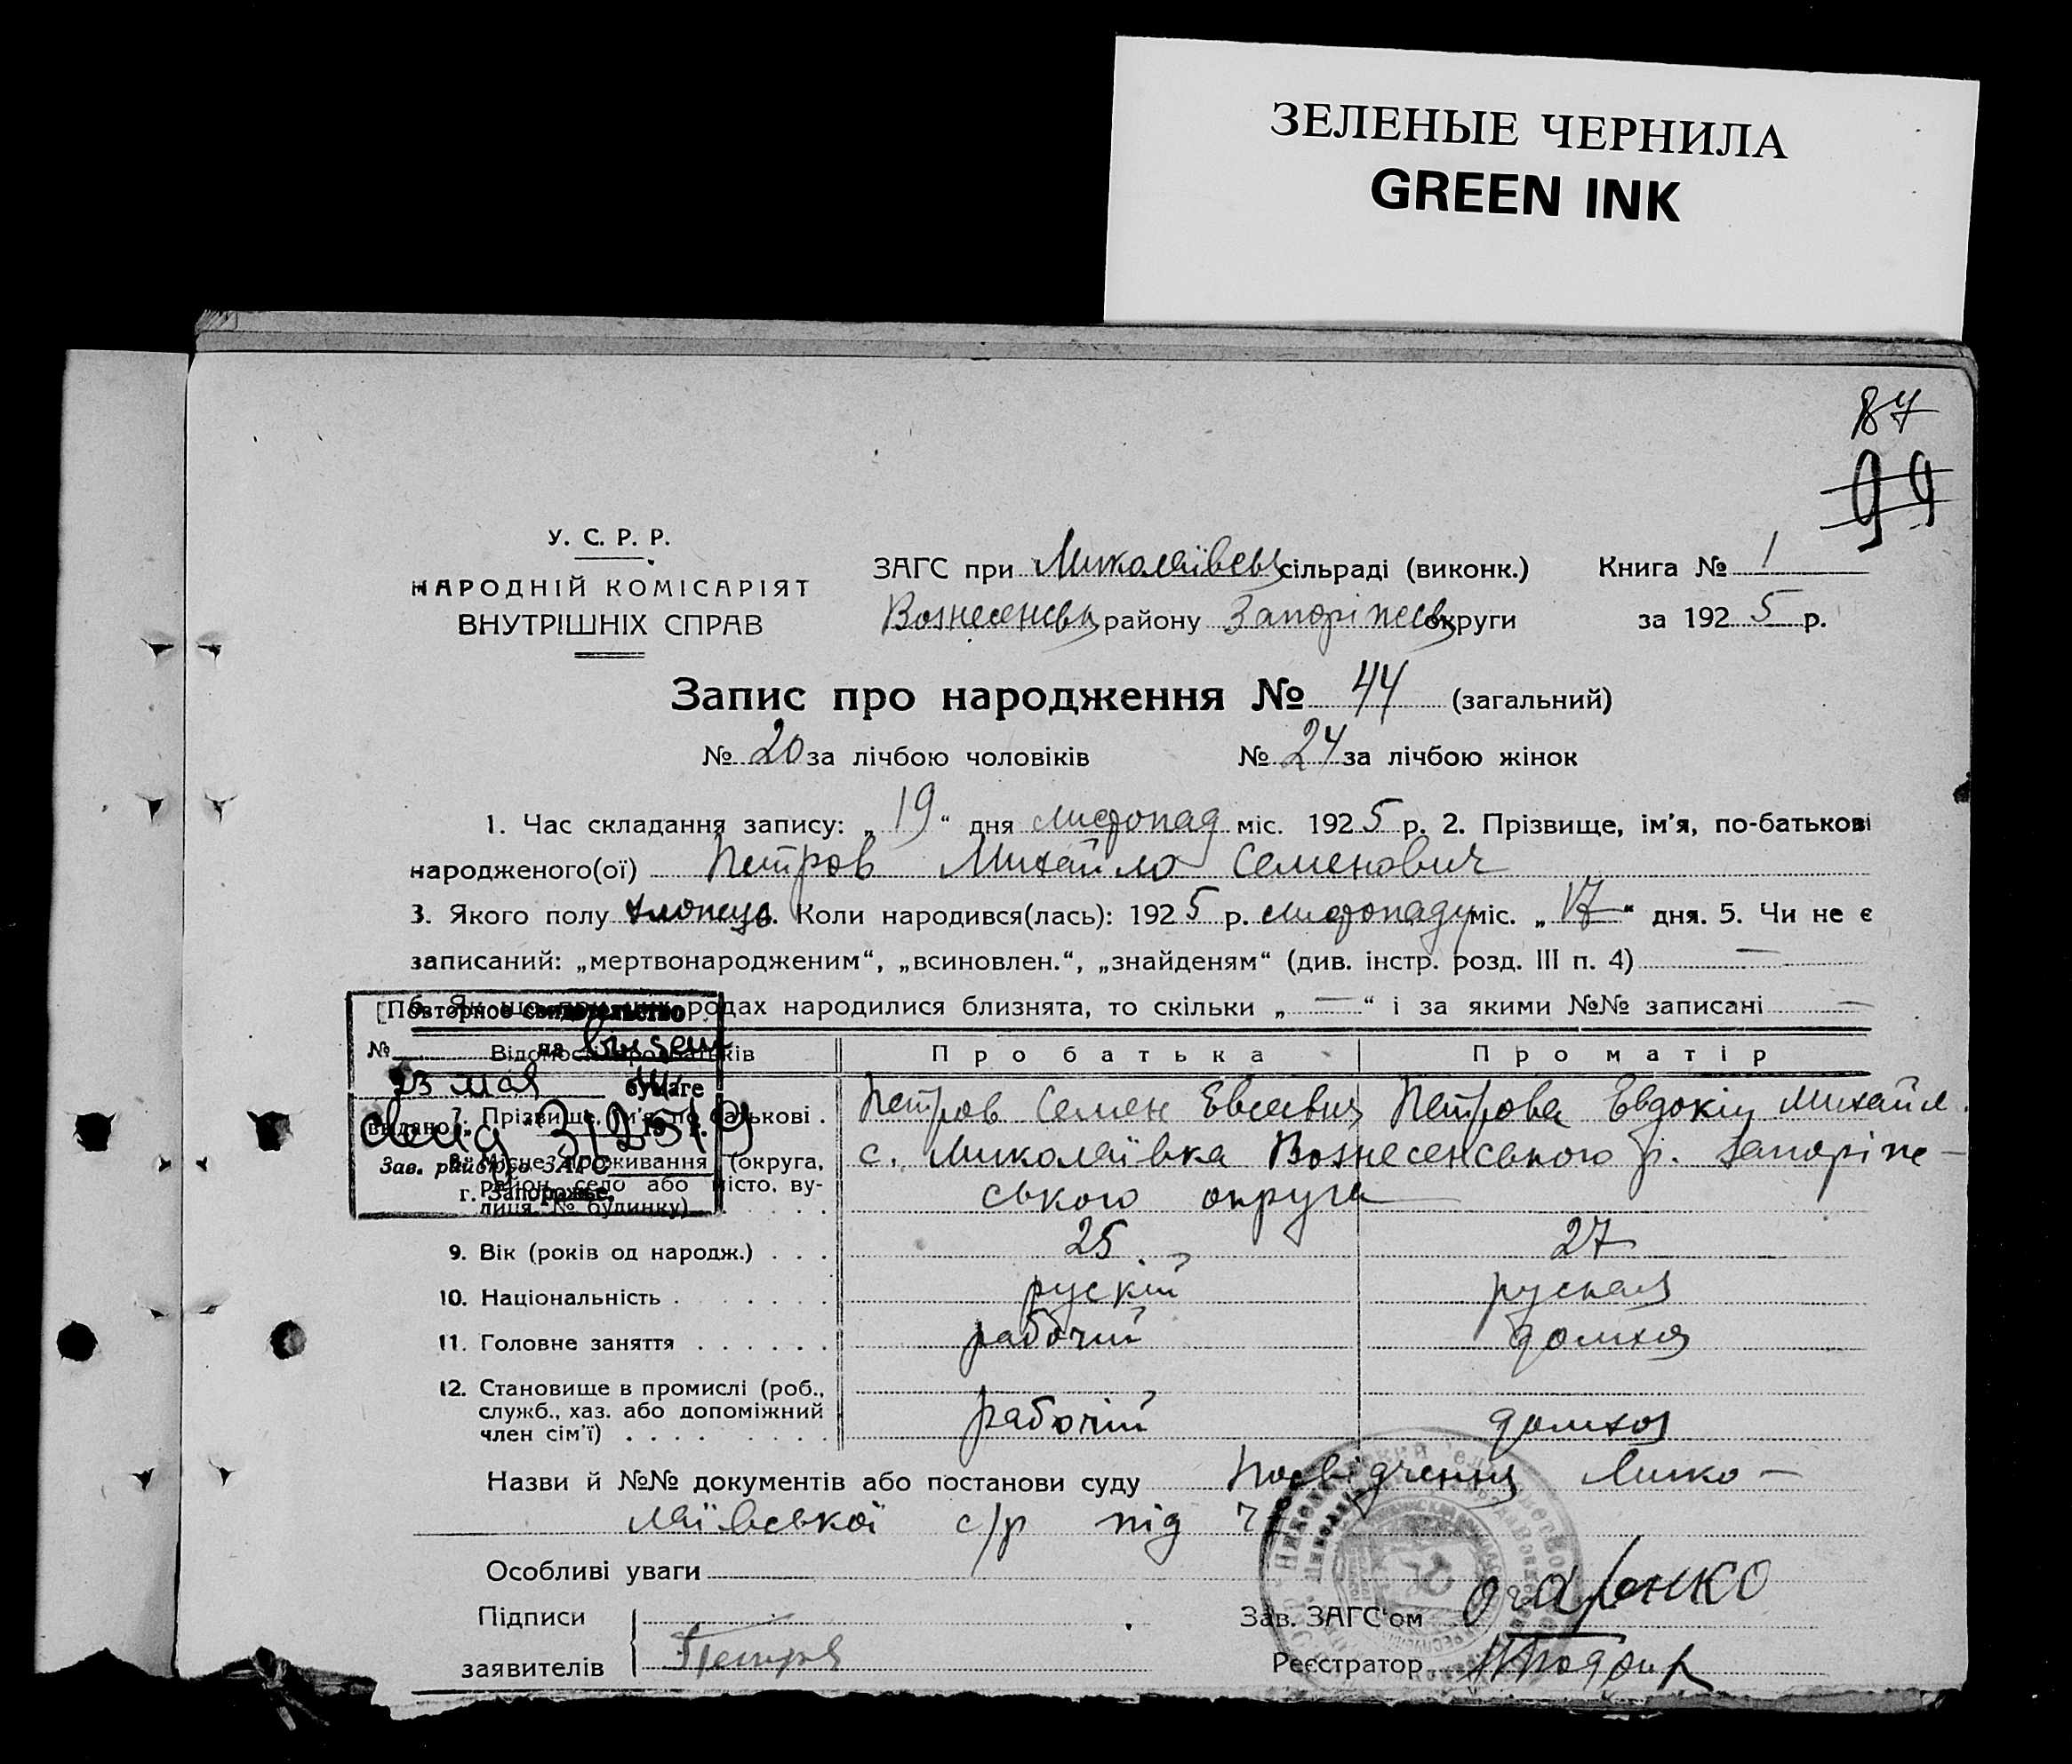 ЗЕЛЕНЫЕ ЧЕРНИЛА
GREEN INK
87
99
У. С. Р. Р.
НАРОДНІЙ КОМІСАРІЯТ
ВНУТРІШНІХ СПРАВ
ЗАГС при Миколаївськ сільраді (виконк.) Книга № 1
Вознесенськ району Запоріжськ округи за 1925 р.
Запис про народження № 44 (загальний)
№ 20 за лічбою чоловіків № 24 за лічбою жінок
1. Час складання запису: „19“ дня листопад міс. 1925 р. 2. Прізвище, ім'я, по-батькові
народженого(ої) Петров Михайло Семенович
3. Якого полу хлопець. Коли народився(лась): 1925 р. листопаду міс. „17“ дня. 5. Чи не є
записаний: „мертвонародженим“, „всиновлен.“, „знайденям“ (див. інстр. розд. III п. 4) —
6. Як що при цих родах народилися близнята, то скільки „—“ і за якими №№ записані —
Повторное свидетельство
№ на
23 мая бумаге
выдано
Зав. райбюро ЗАГС
г. Запорожье.
Відомості про батьків Про батька Про матір
7. Прізвище, ім'я, по батькові . Петров Семен Евсевич Петрова Евдокія Михайл.
8. Місце проживання (округа, с. Миколаївка Вознесенського р. Запоріже-
район, село або місто, ву- ського округа
лиця, № будинку)
9. Вік (років од народж.) . . . 25 27
10. Національність . . . . . . рускій руская
11. Головне заняття . . . . . . рабочий домхоз
12. Становище в промислі (роб.,
служб., хаз. або допоміжний рабочій домхоз
член сім'ї) . . . . . . . .
Назви й №№ документів або постанови суду Посвідчення Мико-
лаївської с/р під ч
Особливі уваги
Підписи Зав. ЗАГС'ом
заявителів Петров Реєстратор